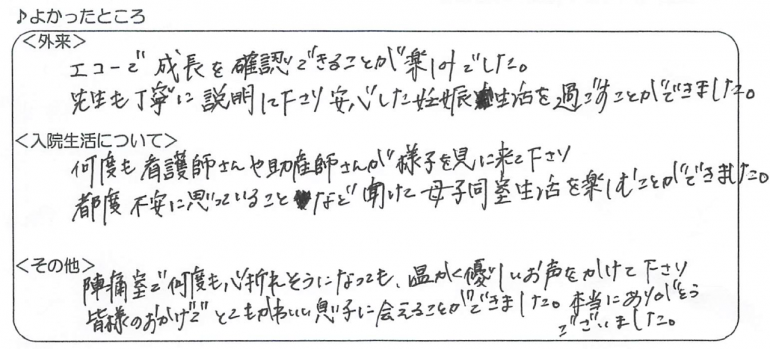 ♪よかったところ
<外来>
エコーで成長を確認できることが楽しみでした。
先生も丁寧に説明して下さり安心した妊娠生活を過ごすことができました。
<入院生活について>
何度も看護師さんや助産師さんが様子を見に来て下さり
都度不安に思っていることなど聞けて母子同室生活を楽しむことができました。
<その他>
陣痛室で何度も心折れそうになっても、温かく優しいお声をかけて下さり
皆様のおかげでとてもかわいい息子に会えることができました。本当にありがとう
ございました。